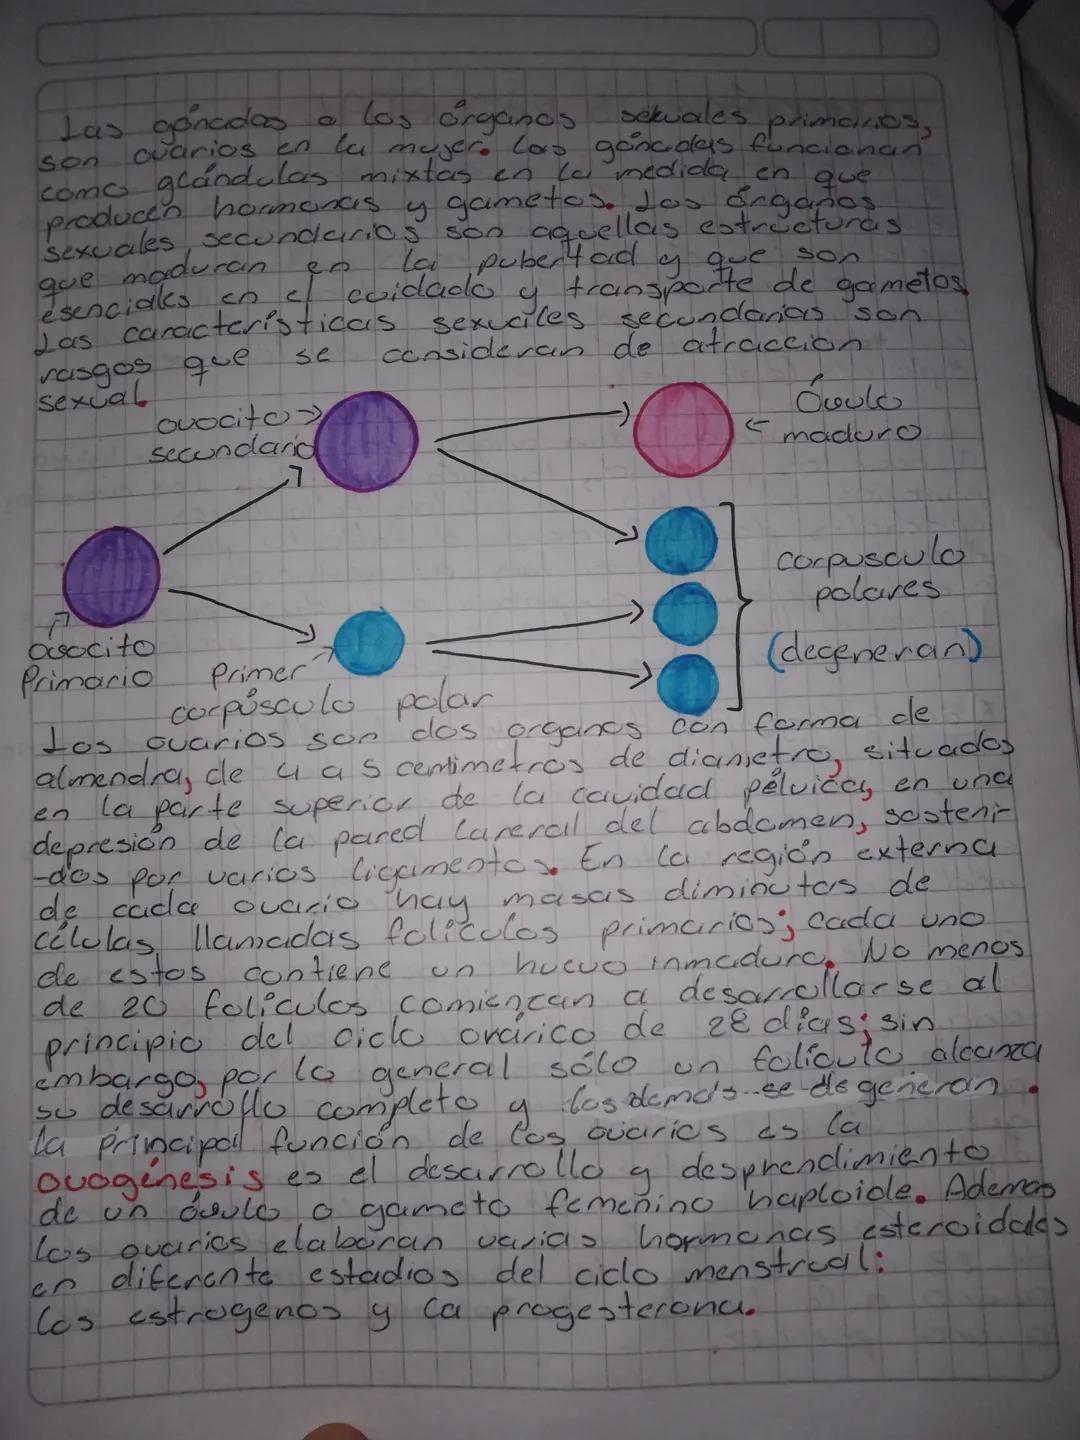 Las gónadas o los órganos sexuales primarios,
son ovarios en la mujer. Las gónadas funcionan
como glándulas mixtas en la medida en que
producen hormonas y gametos. Los órganos
sexuales secundarios son aquellas estructuras
que maduran en la pubertad y que son
esenciales en el cuidado y transporte de gametos.
Las características sexuales secundarias son
rasgos que se consideran de atraccion
sexual.
ovocito →
secundario
Óvulo
← maduro
corpusculo
polares
(degeneran)
Primario
Primer
corpúsculo polar
Los ovarios son dos organos con forma de
almendra, de 4 a 5 centimetros de diametro, situados
en la parte superior de la cavidad pélvica, en una
depresión de la pared lareral del abdomen, sosteni-
-dos por varios ligamentos. En la región externa
de cada ovario hay masas diminutas de
células, llamadas folículos primarios; cada uno
de estos contiene un huevo inmaduro. No menos
de 20 folículos comienzan a desarrollarse al
principio del ciclo orárico de 28 días; sin
embargo, por lo general sólo un folículo alcanza
su desarrollo completo y los demás se degeneran.
la principal función de los ovarios es la
ovogénesis es el desarrollo y desprendimiento
de un óvulo o gameto femenino haploide. Ademas
los ovarios elaboran varias hormonas esteroidales
en diferente estadios del ciclo menstrual:
los estrogenos y la progesterona.